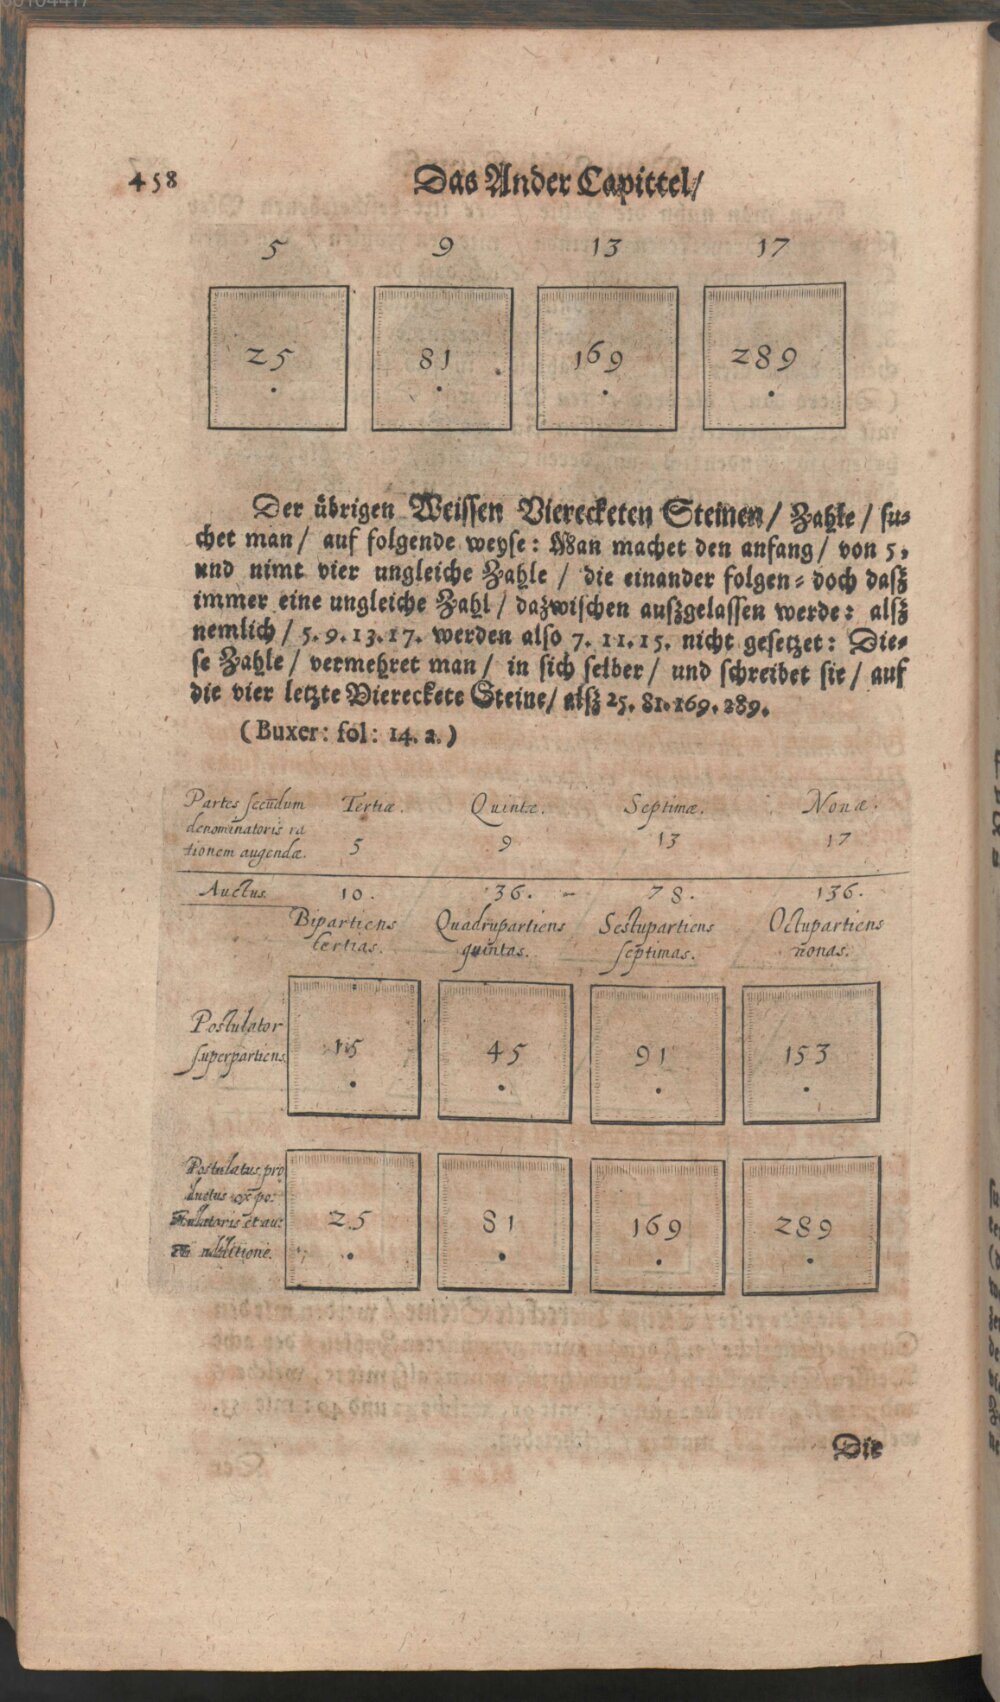 458
Das Ander Capittel/
5 9 13 17
25 81 169 289
Der übrigen Weissen Viereckten Steinen/ Zahle/ su-
chet man/ auf folgende weyse: Man machet den anfang/ von 5,
und nimt vier ungleiche Zahle / die einander folgen - doch dasz
immer eine ungleiche Zahl / dazwischen auszgelassen werde: alsz
nemlich / 5. 9. 13. 17. werden also 7. 11. 15. nicht gesetzet: Die-
se Zahle / vermehret man / in sich selber / und schreibet sie / auf
die vier letzte Viereckete Steine/ alsz 25. 81. 169. 289.
(Buxer: fol: 14. a.)
Partes secūdum Tertiæ. Quintæ. Septimæ. Nonæ.
denominatoris ra
tionem augendæ. 5 9 13 17
Auctus 10. 36. 78. 136.
Bipartiens Quadrupartiens Sestupartiens Octupartiens
tertias. quintas. septimas. nonas.
Postulator
superpartiens 15 45 91 153
Postulatus pro
ductus ex po-
stulatoris et au-
25 81 169 289
additione.
Die